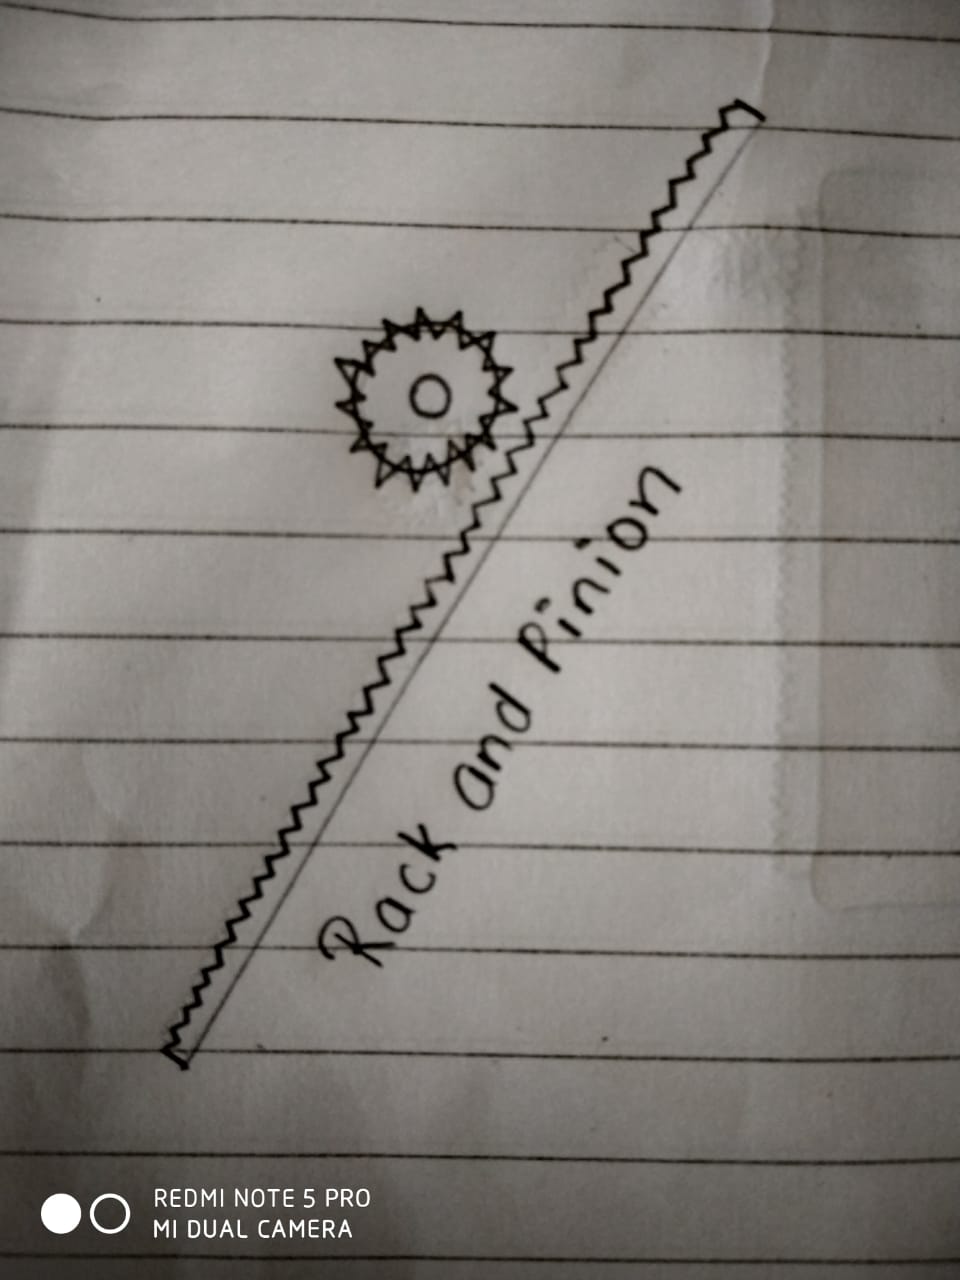 Rack and Pinion
REDMI NOTE 5 PRO
MI DUAL CAMERA